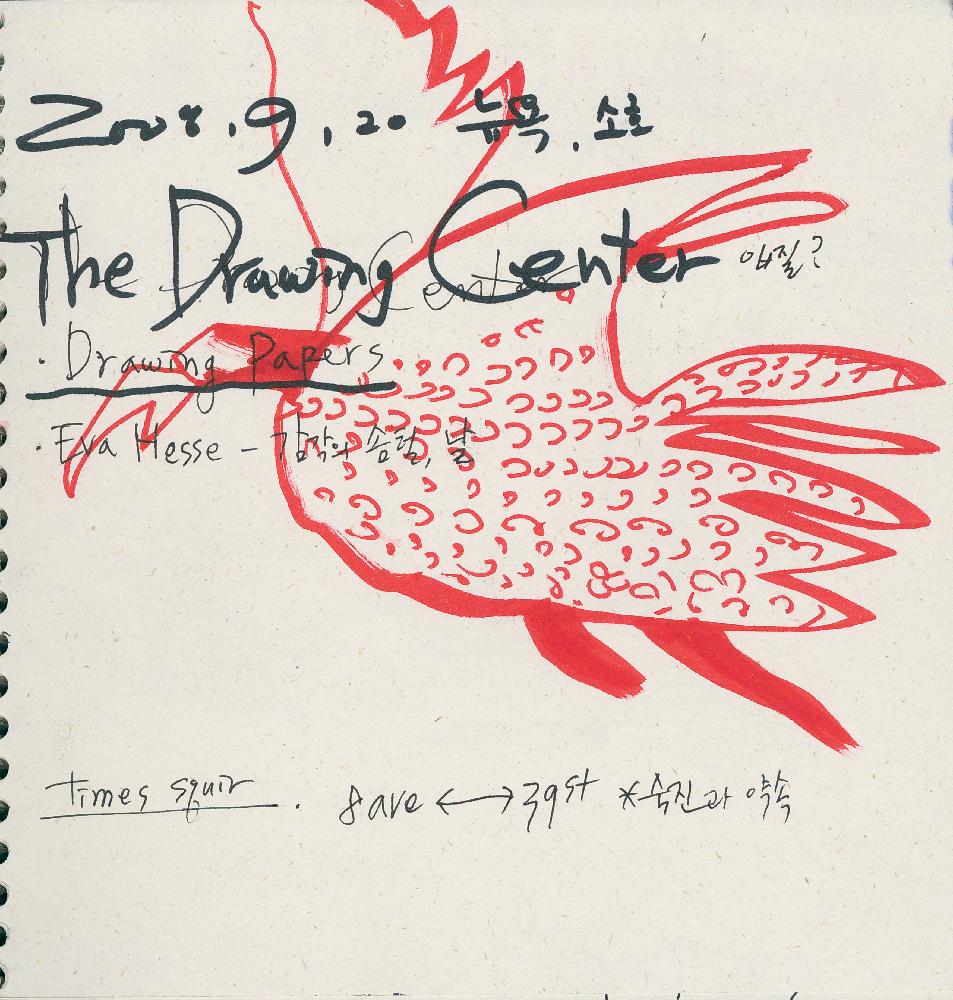 2008.9.20 뉴욕, 소호
The Drawing Center 앞길?
· Drawing Papers
· Eva Hesse – 감각의 솜털, 날
times squir . 8ave ↔ 39st *숙진과 약속